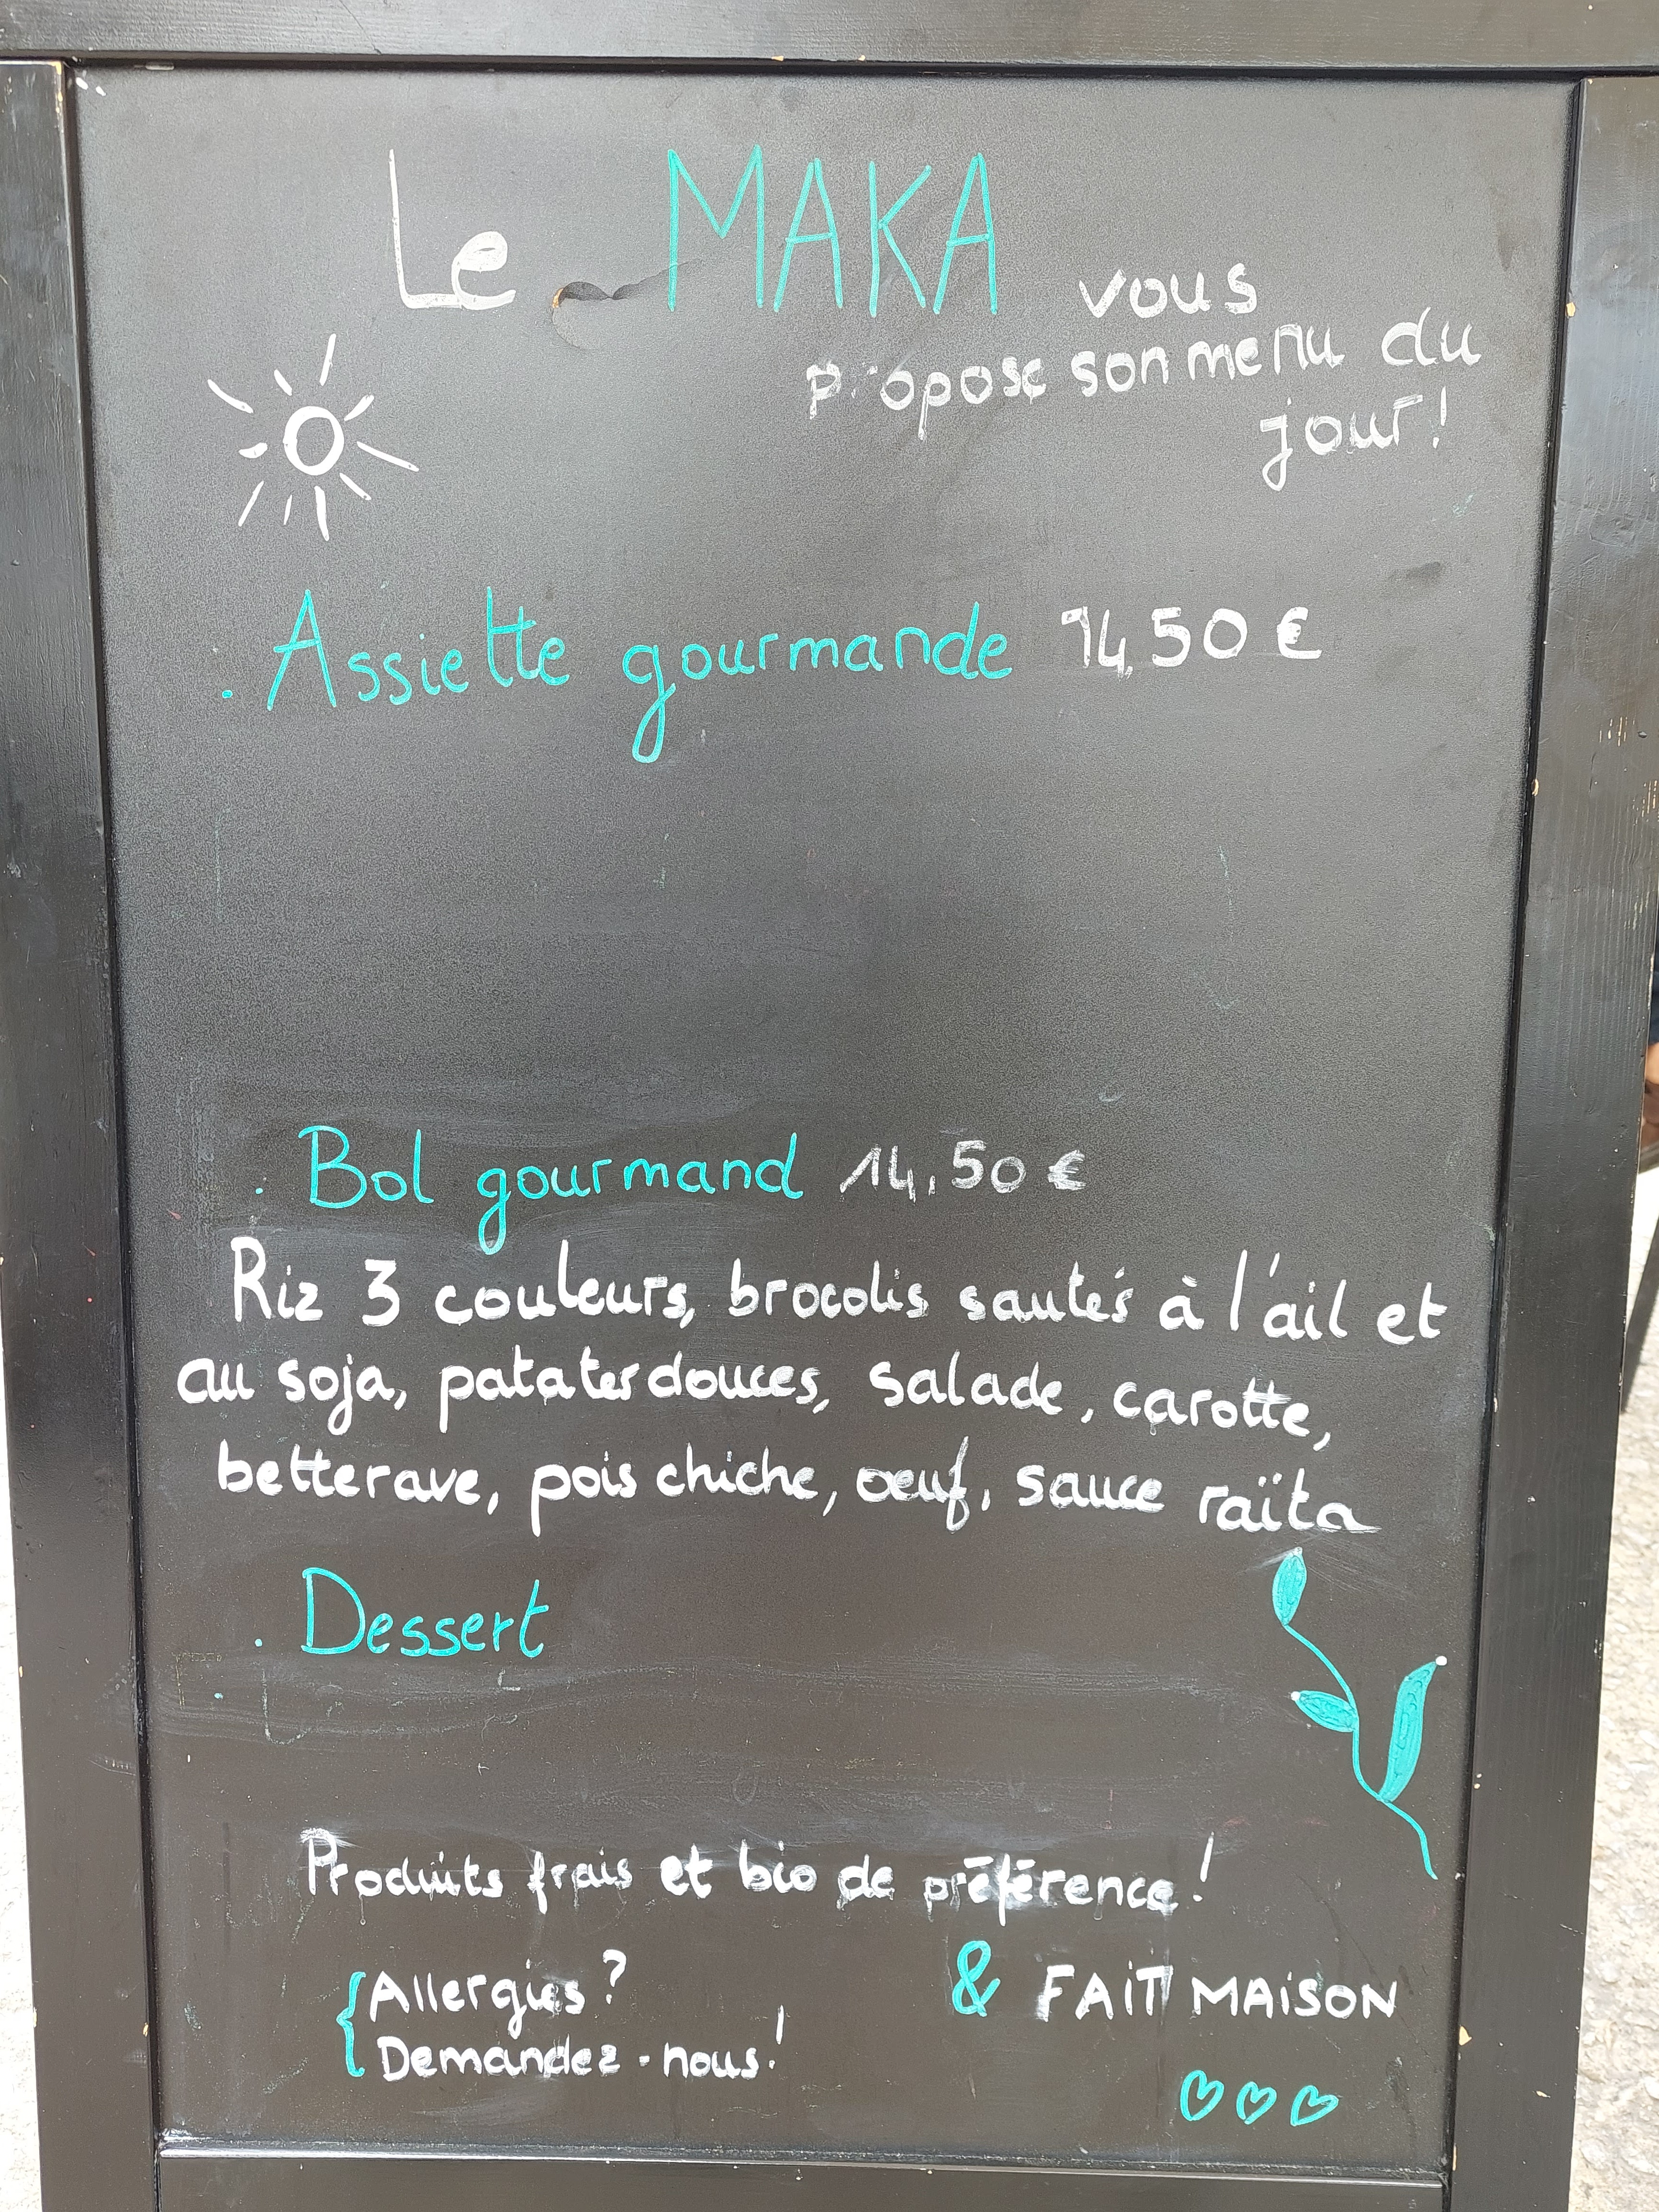 Le MAKA vous
propose son menu du
jour!
. Assiette gourmande 14,50 €
. Bol gourmand 14,50 €
Riz 3 couleurs, brocolis sautés à l'ail et
au soja, patates douces, salade, carotte,
betterave, pois chiche, œuf, sauce raïta
. Dessert
Produits frais et bio de préférence!
{Allergies?
Demandez-nous!
& FAiT MAiSON